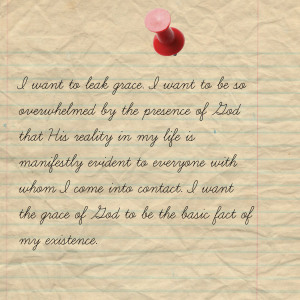 I want to leak grace. I want to be so
overwhelmed by the presence of God
that His reality in my life is
manifestly evident to everyone with
whom I come into contact. I want
the grace of God to be the basic fact of
my existence.